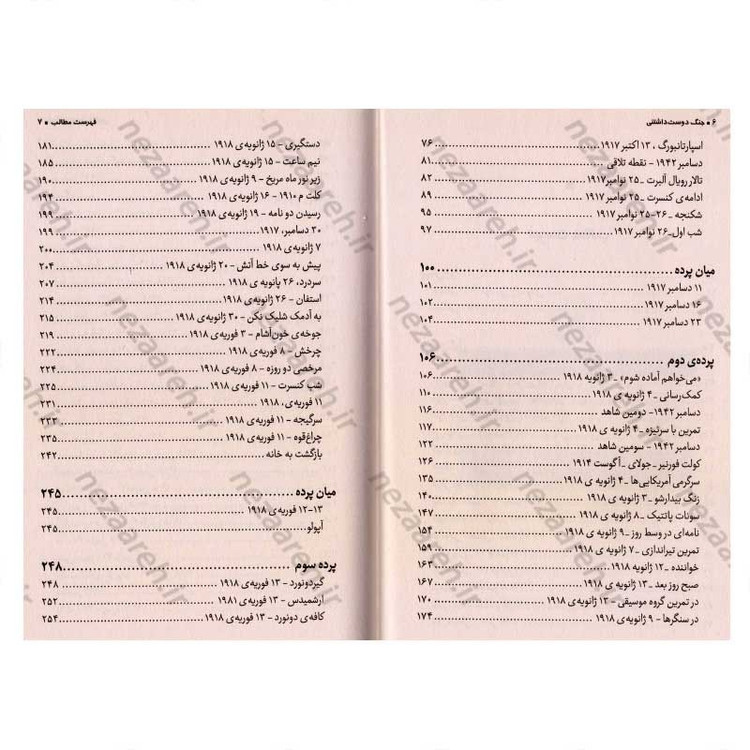 ۶ • جنگ دوست‌داشتنی
اسپارتانبورگ ، ۱۳ اکتبر ۱۹۱۷ ........ ۷۶
دسامبر ۱۹۴۲ - نقطه تلاقی ........ ۸۱
تالار رویال آلبرت - ۲۵ نوامبر۱۹۱۷ ........ ۸۲
ادامه‌ی کنسرت - ۲۵ نوامبر۱۹۱۷ ........ ۸۹
شکنجه - ۲۶-۲۵ نوامبر۱۹۱۷ ........ ۹۵
شب اول_ ۲۶ نوامبر۱۹۱۷ ........ ۹۷
میان پرده ........ ۱۰۰
۱۱ دسامبر ۱۹۱۷ ........ ۱۰۱
۱۶ دسامبر ۱۹۱۷ ........ ۱۰۲
۲۳ دسامبر ۱۹۱۷ ........ ۱۰۴
پرده‌ی دوم ........ ۱۰۶
«می‌خواهم آماده شوم» _ ۳ ژانویه ۱۹۱۸ ........ ۱۰۶
کمک‌رسانی _ ۴ ژانویه ی ۱۹۱۸ ........ ۱۱۰
دسامبر ۱۹۴۲- دومین شاهد ........ ۱۱۶
تمرین با سرنیزه _ ۴ ژانویه ی ۱۹۱۸ ........ ۱۱۷
دسامبر ۱۹۴۲ - سومین شاهد ........ ۱۲۲
کولت فورنیر - جولای _ آگوست ۱۹۱۴ ........ ۱۲۶
سرگرمی آمریکایی‌ها _ ۴ ژانویه ی ۱۹۱۸ ........ ۱۳۵
زنگ بیدارشو _ ۳ ژانویه ی ۱۹۱۸ ........ ۱۴۰
سونات پاتتیک _ ۸ ژانویه ی ۱۹۱۸ ........ ۱۴۷
نامه‌ای در وسط روز _ ۹ ژانویه ی ۱۹۱۸ ........ ۱۵۴
تمرین تیراندازی _ ۷ ژانویه ی ۱۹۱۸ ........ ۱۵۹
خواننده _ ۱۲ ژانویه ۱۹۱۸ ........ ۱۶۳
صبح روز بعد _ ۱۳ ژانویه ی ۱۹۱۸ ........ ۱۶۷
در تمرین گروه موسیقی - ۱۳ ژانویه‌ی ۱۹۱۸ ........ ۱۷۰
در سنگرها - ۹ ژانویه‌ی ۱۹۱۸ ........ ۱۷۴
فهرست مطالب • ۷
دستگیری - ۱۵ ژانویه‌ی ۱۹۱۸ ........ ۱۸۱
نیم ساعت - ۱۵ ژانویه‌ی ۱۹۱۸ ........ ۱۸۵
زیر نور ماه مریخ - ۹ ژانویه‌ی ۱۹۱۸ ........ ۱۹۰
کلت م ۱۹۱۰ - ۱۶ ژانویه‌ی ۱۹۱۸ ........ ۱۹۴
رسیدن دو نامه - ۱۹ ژانویه‌ی ۱۹۱۸ ........ ۱۹۹
۳۰ دسامبر، ۱۹۱۷ ........ ۱۹۹
۷ ژانویه‌ی ۱۹۱۸ ........ ۲۰۰
پیش به سوی خط آتش - ۲۰ ژانویه‌ی ۱۹۱۸ ........ ۲۰۴
سردرد، ۲۶ یانویه ی ۱۹۱۸ ........ ۲۰۷
استفان - ۲۶ ژانویه‌ی ۱۹۱۸ ........ ۲۱۴
به آدمک شلیک نکن - ۳۰ ژانویه‌ی ۱۹۱۸ ........ ۲۱۵
جوخه‌ی خون‌آشام - ۳ فوریه‌ی ۱۹۱۸ ........ ۲۱۹
چرخش - ۸ فوریه‌ی ۱۹۱۸ ........ ۲۲۲
مرخصی دو روزه - ۸ فوریه‌ی ۱۹۱۸ ........ ۲۲۴
شب کنسرت - ۱۱ فوریه‌ی ۱۹۱۸ ........ ۲۲۵
۱۱ فوریه‌ی، ۱۹۱۸ ........ ۲۳۱
سرگیجه - ۱۱ فوریه‌ی ۱۹۱۸ ........ ۲۳۳
چراغ‌قوه - ۱۱ فوریه‌ی ۱۹۱۸ ........ ۲۳۵
بازگشت به خانه ........ ۲۴۲
میان پرده ........ ۲۴۵
۱۳-۱۲ فوریه‌ی ۱۹۱۸ ........ ۲۴۵
آپولو ........ ۲۴۵
پرده سوم ........ ۲۴۸
گیردونورد - ۱۳ فوریه‌ی ۱۹۱۸ ........ ۲۴۸
ارشمیدس - ۱۳ فوریه‌ی ۱۹۸۱ ........ ۲۵۲
کافه‌ی دونورد - ۱۳ فوریه‌ی ۱۹۱۸ ........ ۲۵۴
nezaareh.ir